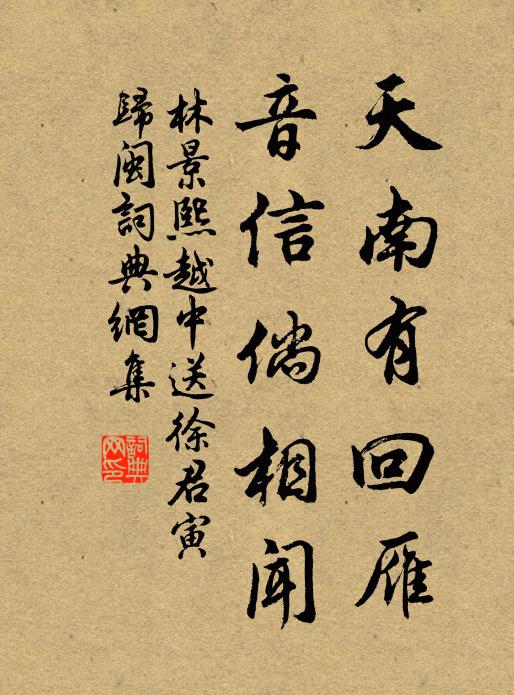 天南有回雁
音信倘相聞
林景熙越中送徐君寅
歸閩詞典網集
詞典网印